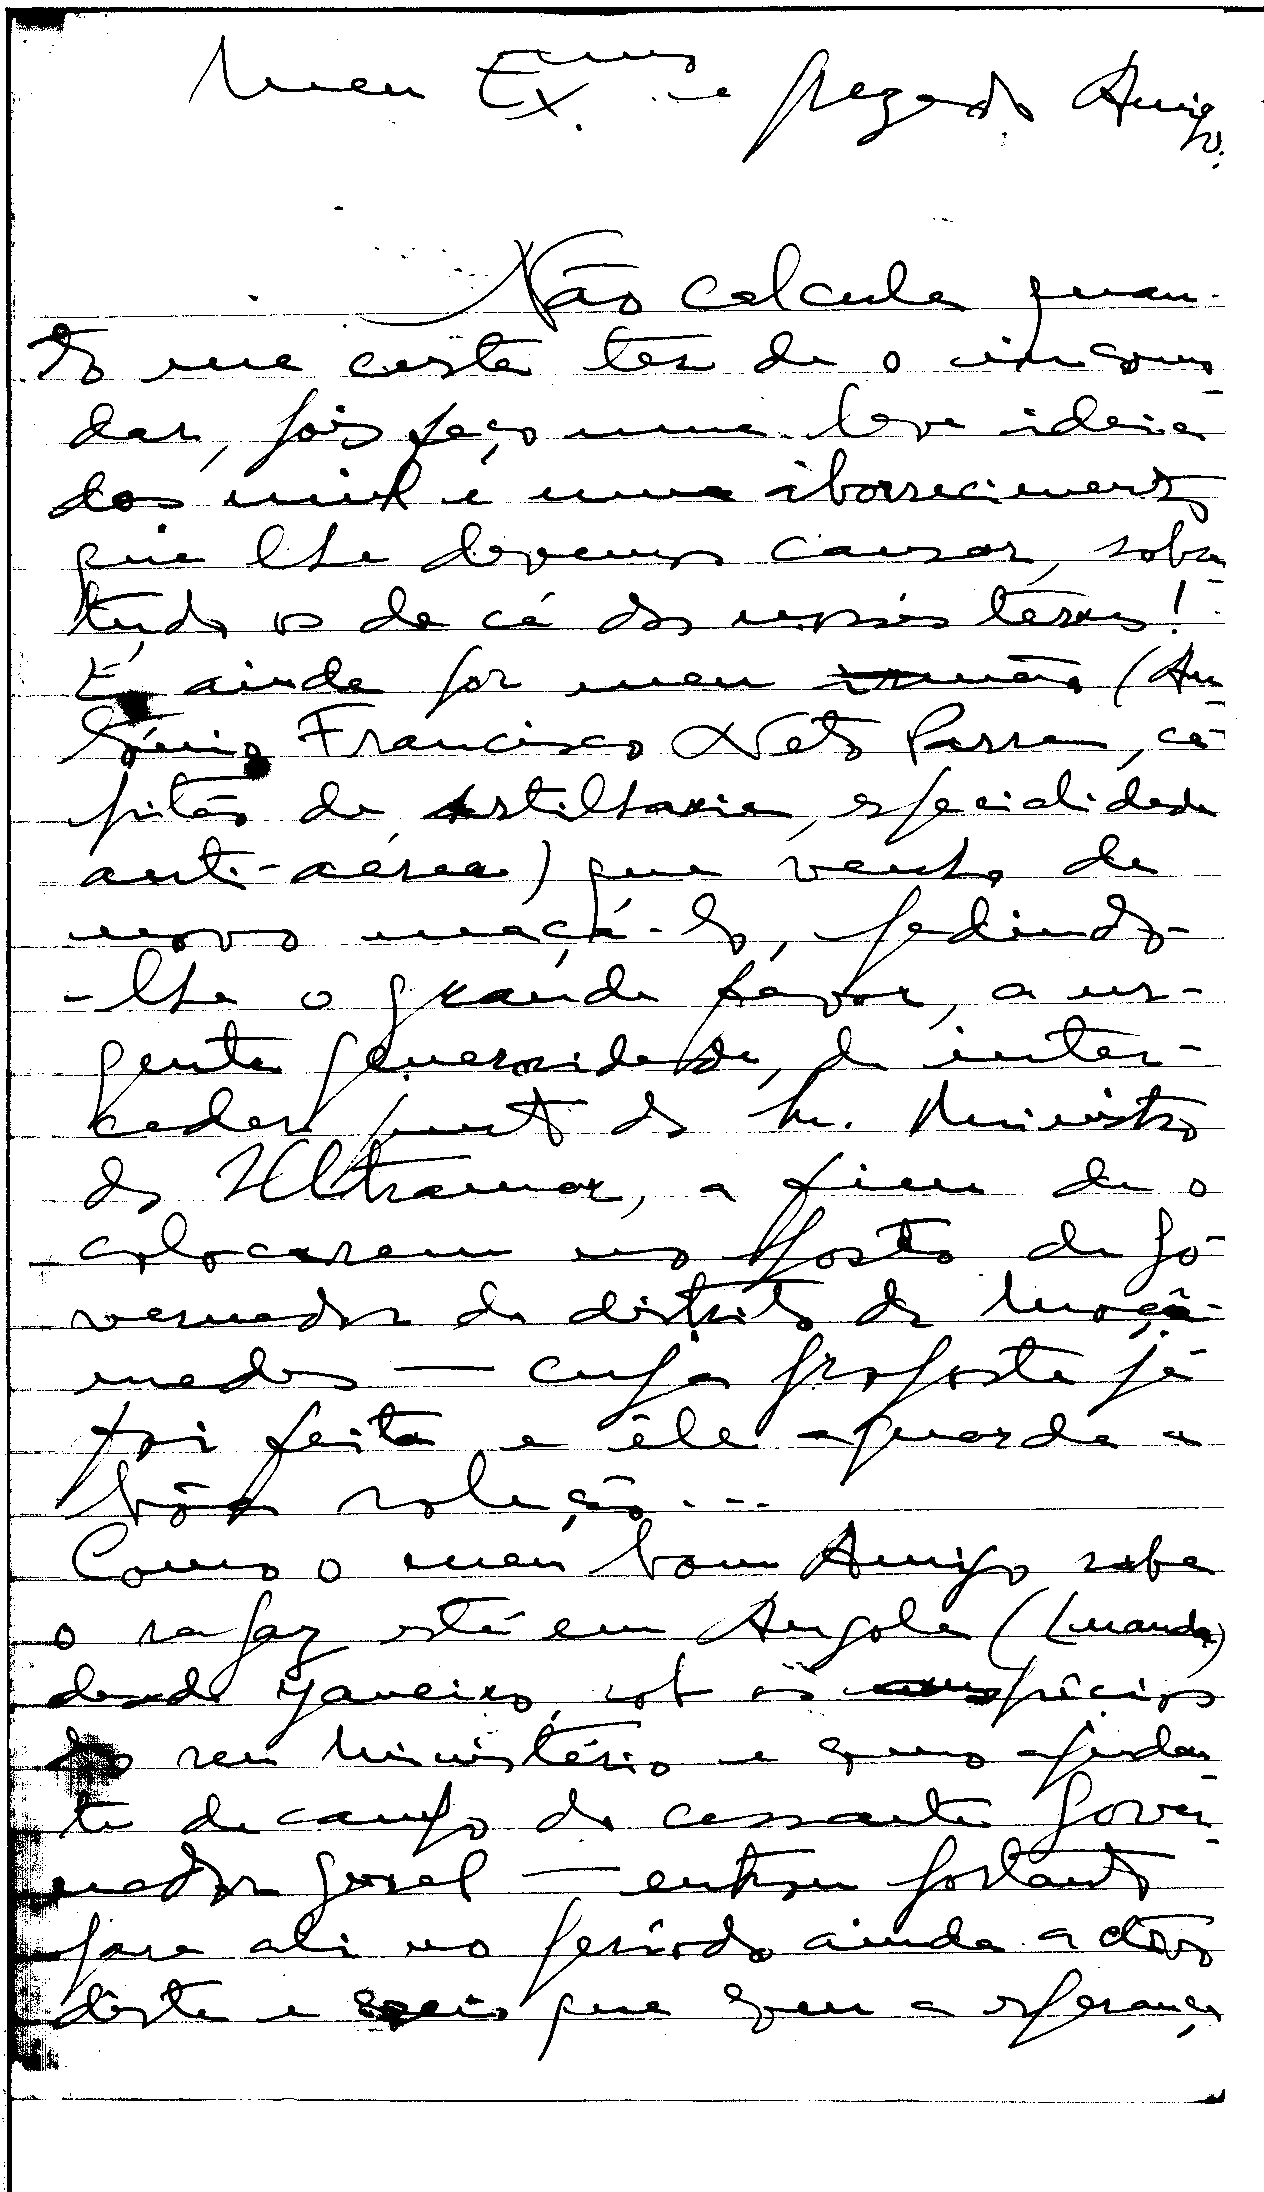 Meu Ex.mo e prezado Amigo:
Não calcula quan-
to me custa ter de o incomo-
dar, pois faço uma leve ideia
dos mil e um aborrecimentos
que lhe devemos causar, sobre-
tudo os de cá dos nossos termos!
É ainda por meu irmão (An-
tónio Francisco Neto Parra, ca-
pitão de artilharia, especialidade
anti-aérea) que venho de
novo maçá-lo, pedindo-
-lhe o grande favor, a ur-
gente generosidade, de inter-
ceder junto do Sr. Ministro
do Ultramar, a fim de o
colocarem no posto de go-
vernador do distrito de Moçâ-
medes — cuja proposta já
foi feita e êle aguarda a
bôa solução...
Como o meu bom Amigo sabe
o rapaz está em Angola (Luanda)
desde Janeiro, sob os auspícios
do seu Ministério e como ajudan-
te de campo do cessante Gover-
nador Geral — entrou portanto
para ali no período ainda activo
dêste e creio que com a esperança